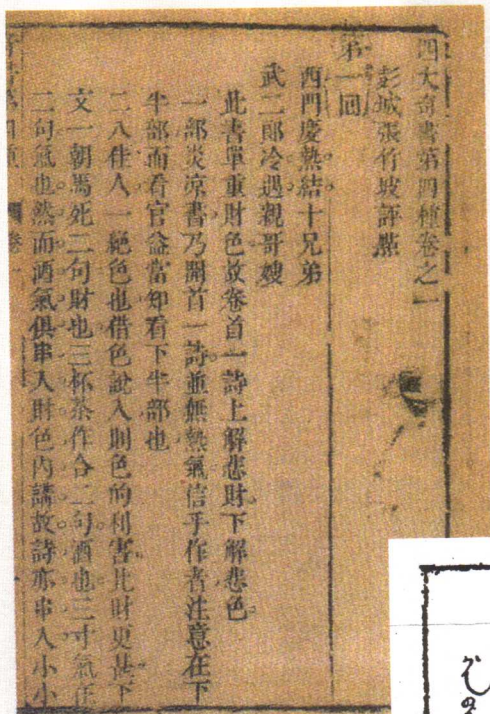 四大奇書第四種卷之一
彭城張竹坡評點
第一回
西門慶熱結十兄弟
武二郎冷遇親哥嫂
此書單重財色故卷首一詩上解悲財下解悲色
一部炎涼書乃開首一詩並無熱氣信乎作者注意在下
半部而看官益當知看下半部也
二八佳人一絕色也借色說入則色的利害比財更甚下
文一朝馬死二句財也三杯茶作合二句酒也三寸氣在
二句氣也然而酒氣俱串入財色內講故詩亦串入小小